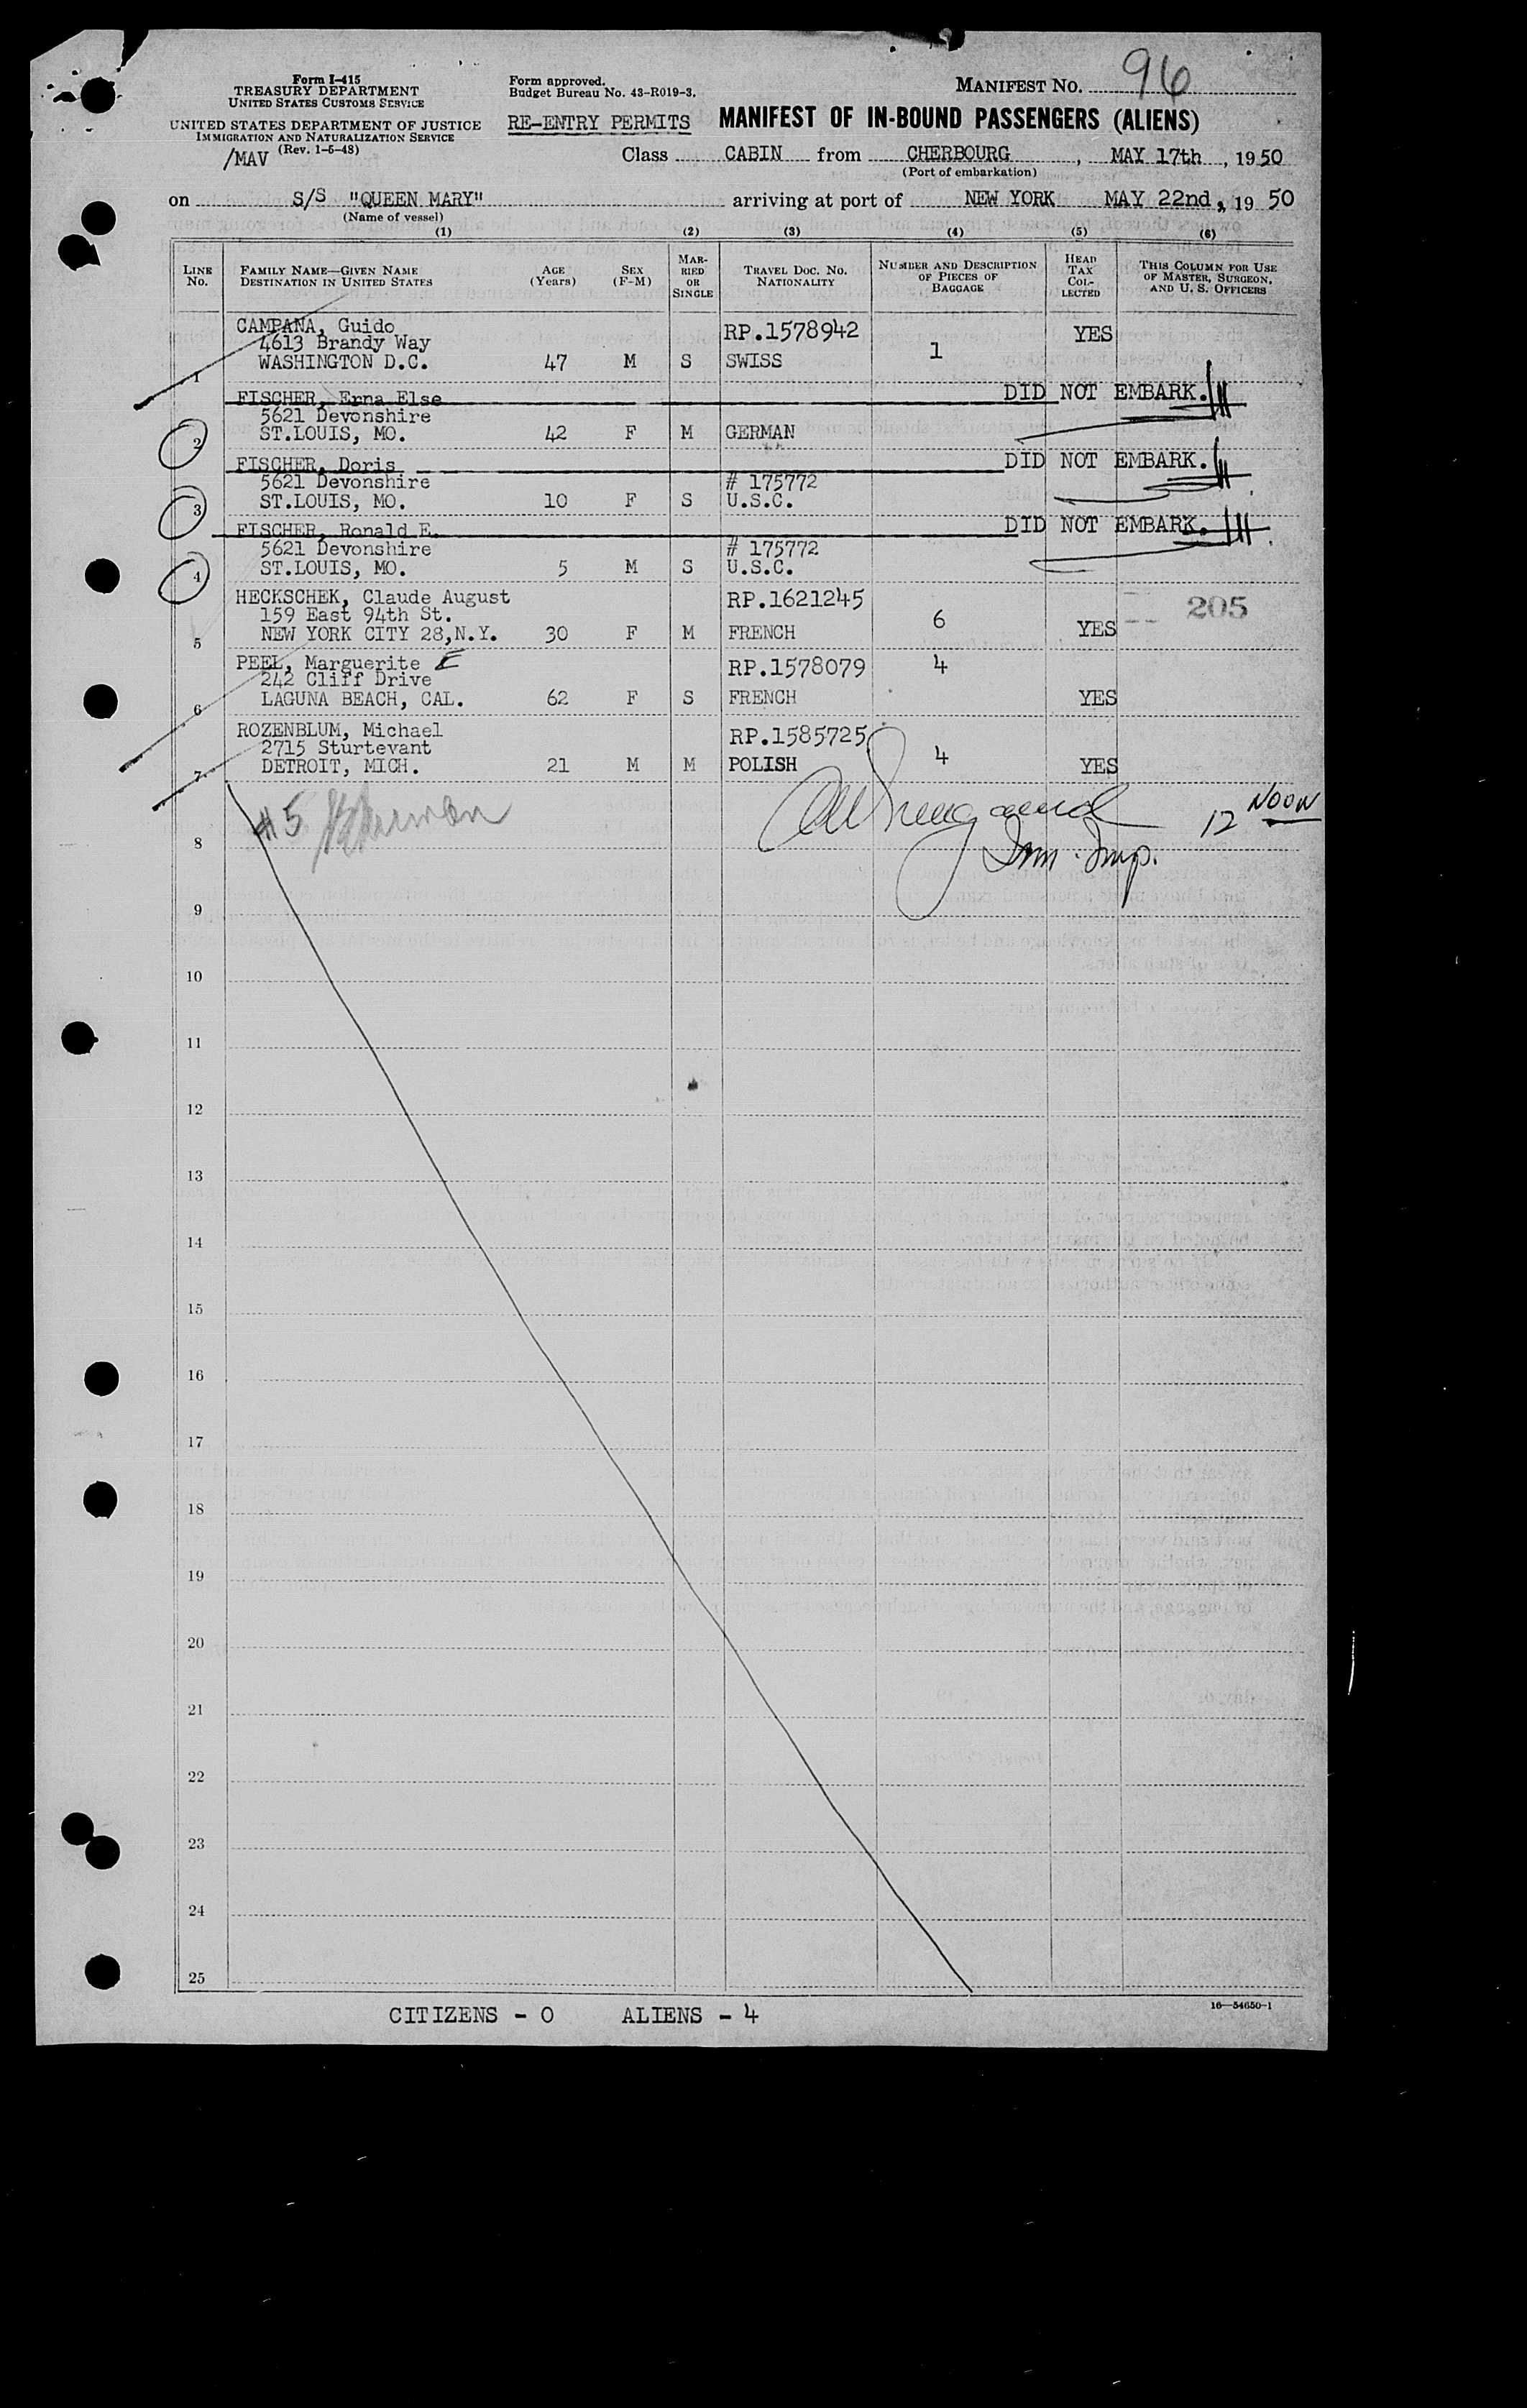 Form I-415
TREASURY DEPARTMENT
UNITED STATES CUSTOMS SERVICE
UNITED STATES DEPARTMENT OF JUSTICE
IMMIGRATION AND NATURALIZATION SERVICE
(Rev. 1-5-48)
/MAV
Form approved.
Budget Bureau No. 43-R019-3.
RE-ENTRY PERMITS
MANIFEST NO. 96
MANIFEST OF IN-BOUND PASSENGERS (ALIENS)
Class CABIN from CHERBOURG, MAY 17th, 1950
(Port of embarkation)
on S/S "QUEEN MARY" arriving at port of NEW YORK MAY 22nd, 1950
(Name of vessel)
(1) (2) (3) (4) (5) (6)
LINE No.
FAMILY NAME—GIVEN NAME
DESTINATION IN UNITED STATES
AGE (Years)
SEX (F-M)
MARRIED OR SINGLE
TRAVEL DOC. NO.
NATIONALITY
NUMBER AND DESCRIPTION OF PIECES OF BAGGAGE
HEAD TAX COLLECTED
THIS COLUMN FOR USE OF MASTER, SURGEON, AND U. S. OFFICERS
CAMPANA, Guido RP.1578942 YES
4613 Brandy Way 1
WASHINGTON D.C. 47 M S SWISS
1
FISCHER, Erna Else DID NOT EMBARK.
5621 Devonshire
2 ST.LOUIS, MO. 42 F M GERMAN
FISCHER, Doris DID NOT EMBARK.
5621 Devonshire # 175772
3 ST.LOUIS, MO. 10 F S U.S.C.
FISCHER, Ronald E. DID NOT EMBARK.
5621 Devonshire # 175772
4 ST.LOUIS, MO. 5 M S U.S.C.
HECKSCHEK, Claude August RP.1621245 205
159 East 94th St. 6
5 NEW YORK CITY 28,N.Y. 30 F M FRENCH YES
PEEL, Marguerite E RP.1578079 4
242 Cliff Drive
6 LAGUNA BEACH, CAL. 62 F S FRENCH YES
ROZENBLUM, Michael RP.1585725
2715 Sturtevant 4
7 DETROIT, MICH. 21 M M POLISH YES
#5
12 NOON
Imm. Insp.
8
9
10
11
12
13
14
15
16
17
18
19
20
21
22
23
24
25
CITIZENS - 0 ALIENS - 4
16—54650-1